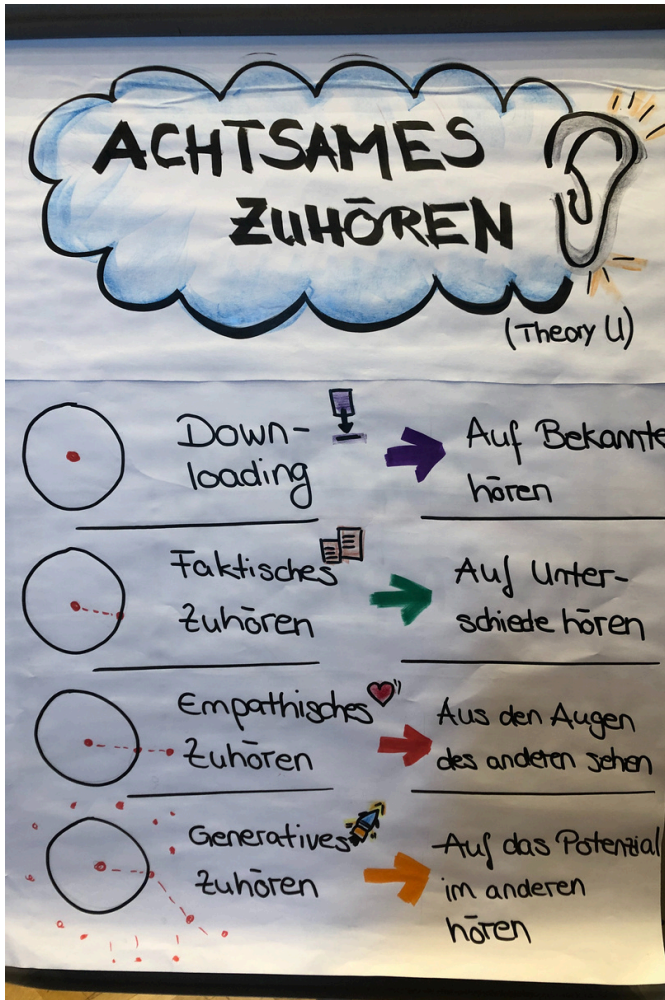 ACHTSAMES
ZUHÖREN
(Theory U)
Down-
loading
Auf Bekannte
hören
Faktisches
Zuhören
Auf Unter-
schiede hören
Empathisches
Zuhören
Aus den Augen
des anderen sehen
Generatives
Zuhören
Auf das Potenzial
im anderen
hören